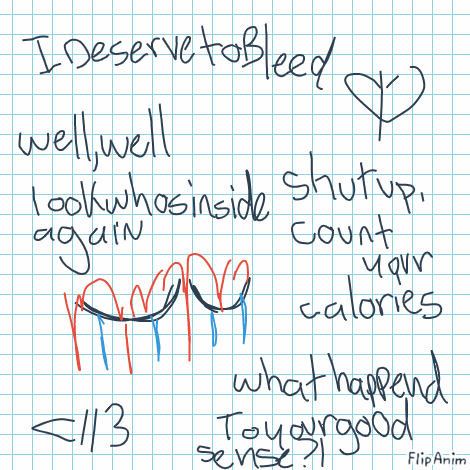 I Deserve to Bleed
well, well
look whos inside
again
shut up,
count
your
calories
what happend
To your good
sense?!
<//3
FlipAnim